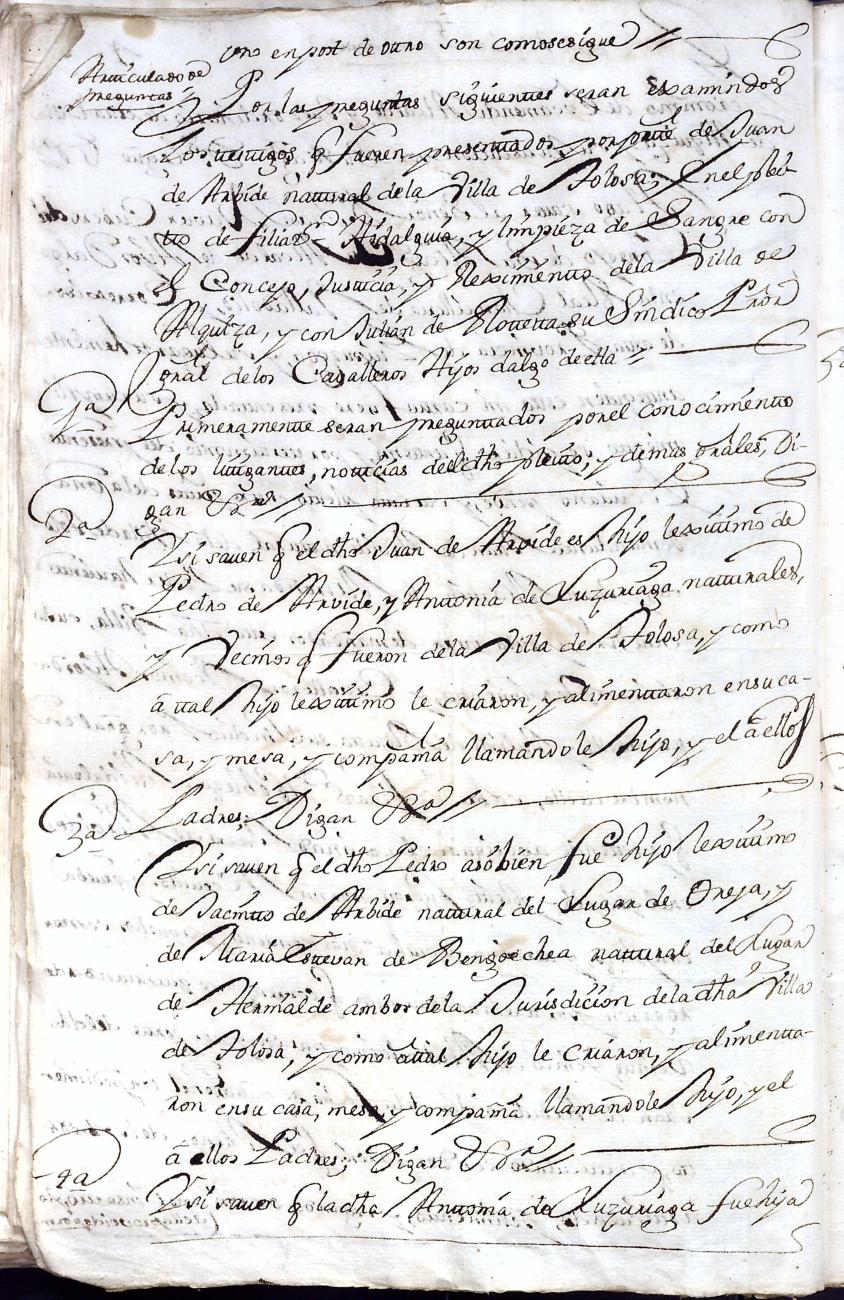 uno en post de outro son como se sigue
Articulado de
preguntas
Por las preguntas siguientes seran examindos
Los testigos q fueren presentados por parte de Juan
de Arbide natural de la Villa de Tolosa, En el plei-
tto de filiazon Hidalguia, y limpieza de Sangre con
el Concejo, Justicia, y Reximiento de la Villa de
Alquiza, y con Julian de Rotetta su Sindico Pror
gnal de los Cavalleros Hijos dalgo de ella
1ª
Primeramente seran preguntados por el conocimiento
de los litigantes, noticias del dho pleito; y demas gnrales, Di-
gan &ª
2ª
Y si saven q el dho Juan de Arvide, es hijo lexitimo de
Pedro de Arvide, y Antonia de Luzuriaga naturales,
y Vecinos q fueron de la Villa de Tolosa, y como
a tal hijo lexitimo le criaron, y alimentaron en su ca-
sa, y mesa, y compañia llamandole hijo, y el a ellos
Padres; Digan &ª
3ª
Y si saven q el dho Pedro asobien fue hijo lexitimo
de Jacinto de Arbide natural del Lugar de Oreja, y
de Maria Estevan de Bengoechea natural del Lugar
de Hernialde ambos de la Jurisdicion de la dha Villa
de Tolosa, y como a tal hijo le criaron, y alimenta-
ron en su casa, mesa, y compañia llamandole hijo, y el
a ellos Padres; Digan &ª
4ª
Y si saven q la dha Antonia de Luzuriaga fue hija